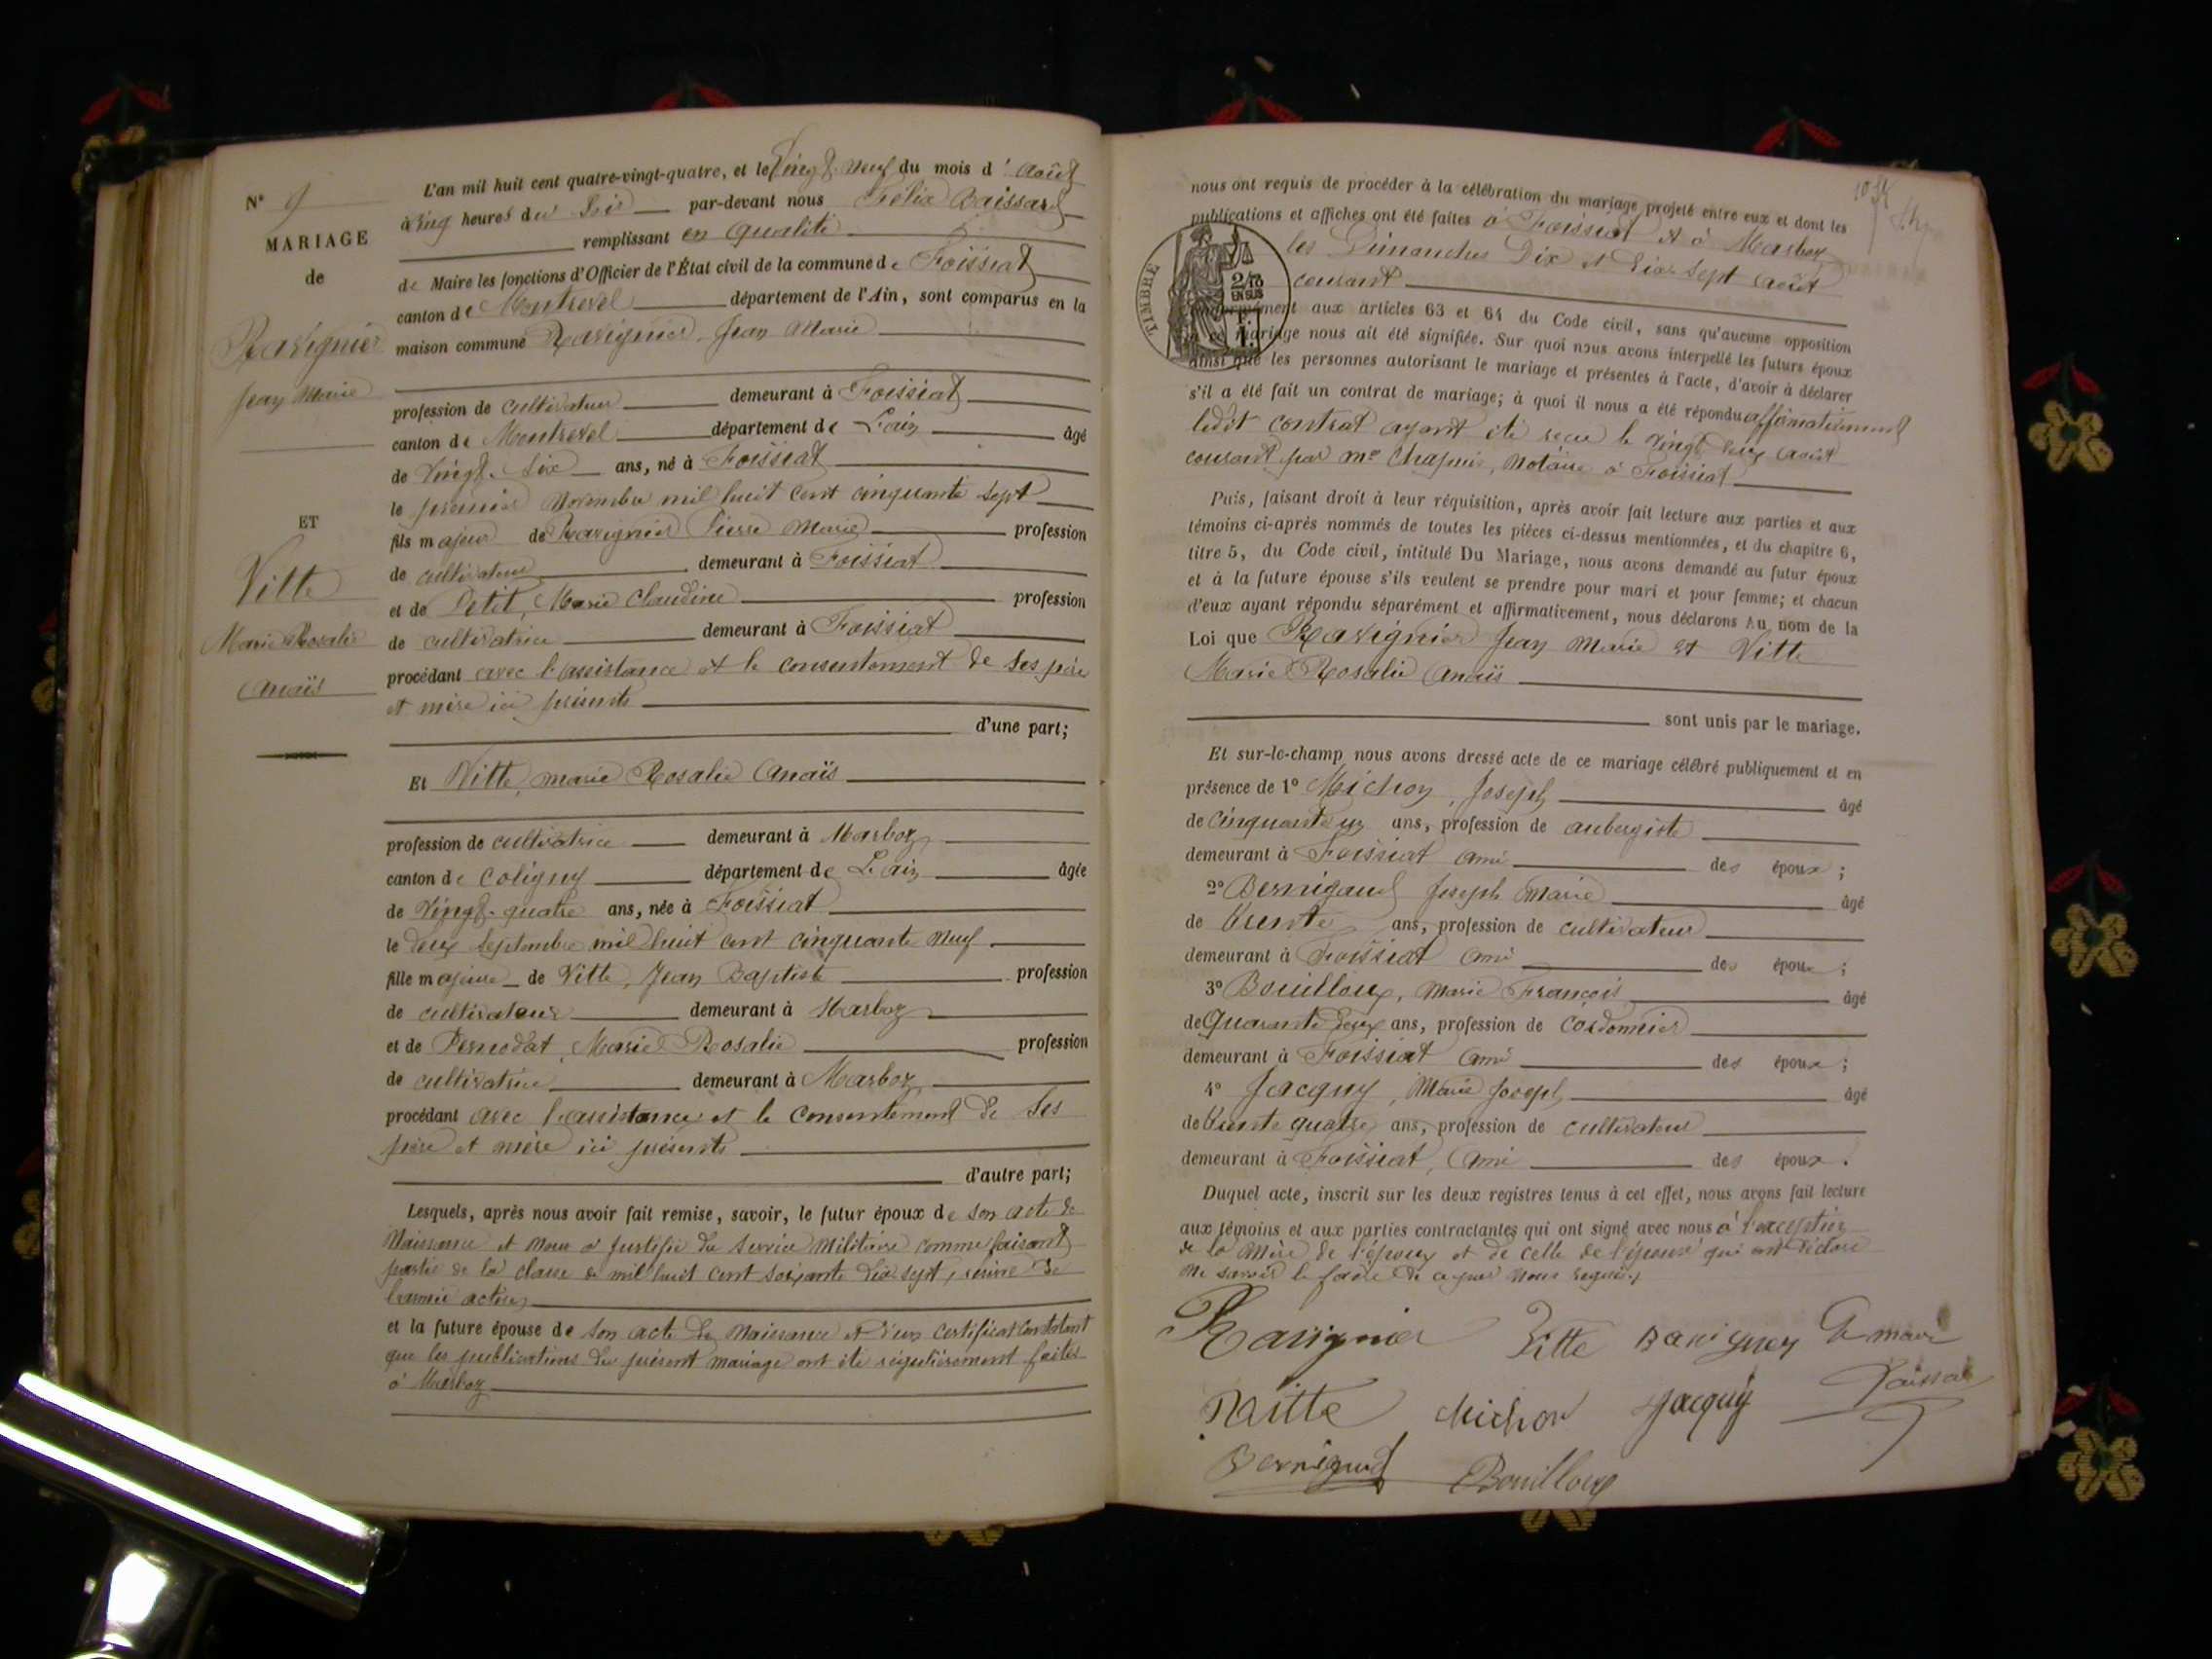 N° 9
MARIAGE
de
Ravignier
Jean Marie
ET
Vitte
Marie Rosalie
Anaïs
L'an mil huit cent quatre-vingt-quatre, et le Vingt Neuf du mois d'Août
à Cinq heures du Soir par-devant nous Félix Baissard
remplissant en qualité
de Maire les fonctions d'Officier de l'État civil de la commune de Foissiat
canton de Montrevel département de l'Ain, sont comparus en la
maison commune Ravignier, Jean Marie
profession de cultivateur demeurant à Foissiat
canton de Montrevel département de L'ain âgé
de Vingt-Six ans, né à Foissiat
le premier Novembre mil huit cent cinquante sept
fils majeur de Ravignier Pierre Marie profession
de cultivateur demeurant à Foissiat
et de Petit, Marie Claudine profession
de cultivatrice demeurant à Foissiat
procédant avec l'assistance et le consentement de ses père
et mère ici présents
d'une part;
Et Vitte, marie Rosalie Anaïs
profession de cultivatrice demeurant à Marboz
canton de Coligny département de L'ain âgée
de Vingt-quatre ans, née à Foissiat
le deux Septembre mil huit cent cinquante Neuf
fille majeure de Vitte, Jean Baptiste profession
de cultivateur demeurant à Marboz
et de Pernodat, Marie Rosalie profession
de cultivatrice demeurant à Marboz
procédant avec l'assistance et le consentement de Ses
père et mère ici présents
d'autre part;
Lesquels, après nous avoir fait remise, savoir, le futur époux de son acte de
Naissance et Nous a justifié du Service Militaire comme faisant
partie de la classe de mil huit cent soixante dix sept, réserve de
l'armée active,
et la future épouse de son acte de Naissance et d'un certificat constatant
que les publications du présent mariage ont été régulièrement faites
à Marboz
nous ont requis de procéder à la célébration du mariage projeté entre eux et dont les
publications et affiches ont été faites à Foissiat et à Marboz
les Dimanches Dix et Dix-Sept août
courant
TIMBRE
2/10
EN SUS
F.
1.
aux articles 63 et 64 du Code civil, sans qu'aucune opposition
mariage nous ait été signifiée. Sur quoi nous avons interpellé les futurs époux
ainsi que les personnes autorisant le mariage et présentes à l'acte, d'avoir à déclarer
s'il a été fait un contrat de mariage; à quoi il nous a été répondu affirmativement
ledit contrat ayant été reçu le vingt deux août
courant par me Chapuis, Notaire à Foissiat
Puis, faisant droit à leur réquisition, après avoir fait lecture aux parties et aux
témoins ci-après nommés de toutes les pièces ci-dessus mentionnées, et du chapitre 6,
titre 5, du Code civil, intitulé Du Mariage, nous avons demandé au futur époux
et à la future épouse s'ils veulent se prendre pour mari et pour femme; et chacun
d'eux ayant répondu séparément et affirmativement, nous déclarons Au nom de la
Loi que Ravignier Jean Marie et Vitte
Marie Rosalie Anaïs
sont unis par le mariage.
Et sur-le-champ nous avons dressé acte de ce mariage célébré publiquement et en
présence de 1° Michon, Joseph âgé
de Cinquante un ans, profession de aubergiste
demeurant à Foissiat ami des époux;
2° Bernigaud Joseph Marie âgé
de trente ans, profession de cultivateur
demeurant à Foissiat ami des époux;
3° Bouilloux, Marie François âgé
de Quarante deux ans, profession de cordonnier
demeurant à Foissiat ami des époux;
4° Jacquy, Marie Joseph âgé
de trente quatre ans, profession de cultivateur
demeurant à Foissiat, ami des époux.
Duquel acte, inscrit sur les deux registres tenus à cet effet, nous avons fait lecture
aux témoins et aux parties contractantes qui ont signé avec nous à l'exception
de la mère de l'époux et de celle de l'épouse qui ont déclaré
ne savoir le faire de ce par Nous requis
Ravignier Vitte Ravignier Le maire
Baissard
Vitte Michon Jacquy
Bernigaud Bouilloux